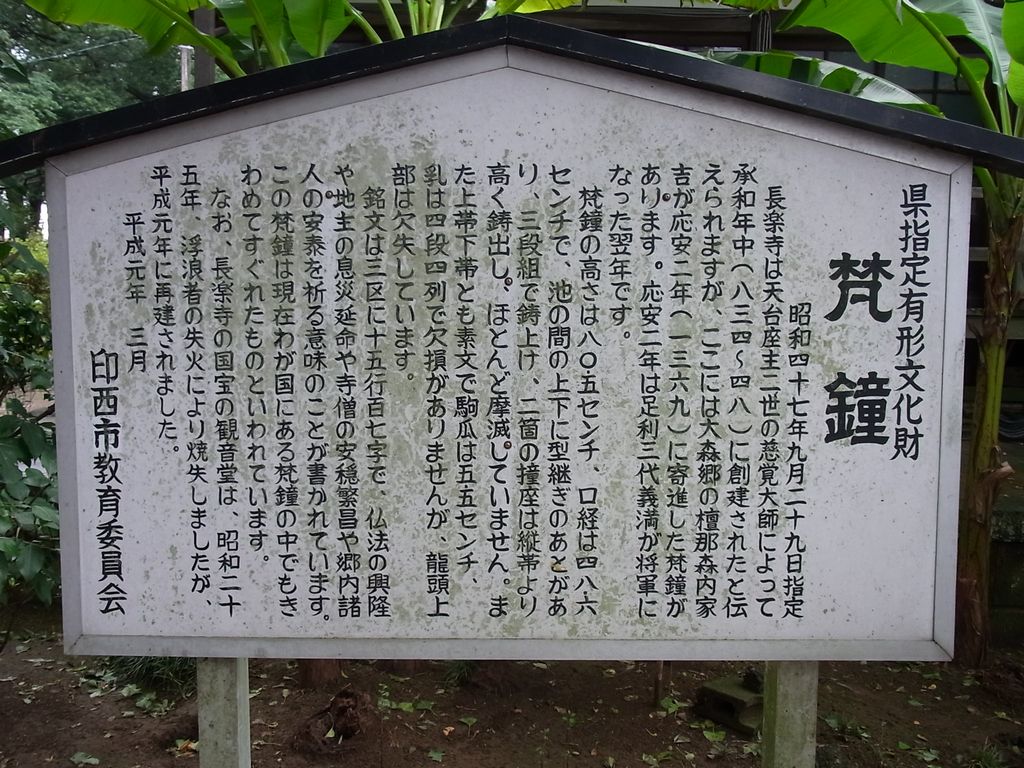 県指定有形文化財
梵鐘
昭和四十七年九月二十九日指定
長楽寺は天台座主二世の慈覚大師によって
承和年中（八三四～四八）に創建されたと伝
えられますが、ここには大森郷の檀那森内家
吉が応安二年（一三六九）に寄進した梵鐘が
あります。応安二年は足利三代義満が将軍に
なった翌年です。
梵鐘の高さは八〇・五センチ、口経は四八・六
センチで、池の間の上下に型継ぎのあとがあ
り、三段組で鋳上け、二箇の撞座は縦帯より
高く鋳出し、ほとんど摩滅していません。ま
た上帯下帯とも素文で駒瓜は五・五センチ、
乳は四段四列で欠損がありませんが、龍頭上
部は欠失しています。
銘文は三区に十五行百七字で、仏法の興隆
や地主の息災延命や寺僧の安穏繁昌や郷内諸
人の安泰を祈る意味のことが書かれています。
この梵鐘は現在わが国にある梵鐘の中でもき
わめてすぐれたものといわれています。
なお、長楽寺の国宝の観音堂は、昭和二十
五年 浮浪者の失火により焼失しましたが、
平成元年に再建されました。
平成元年 三月
印西市教育委員会